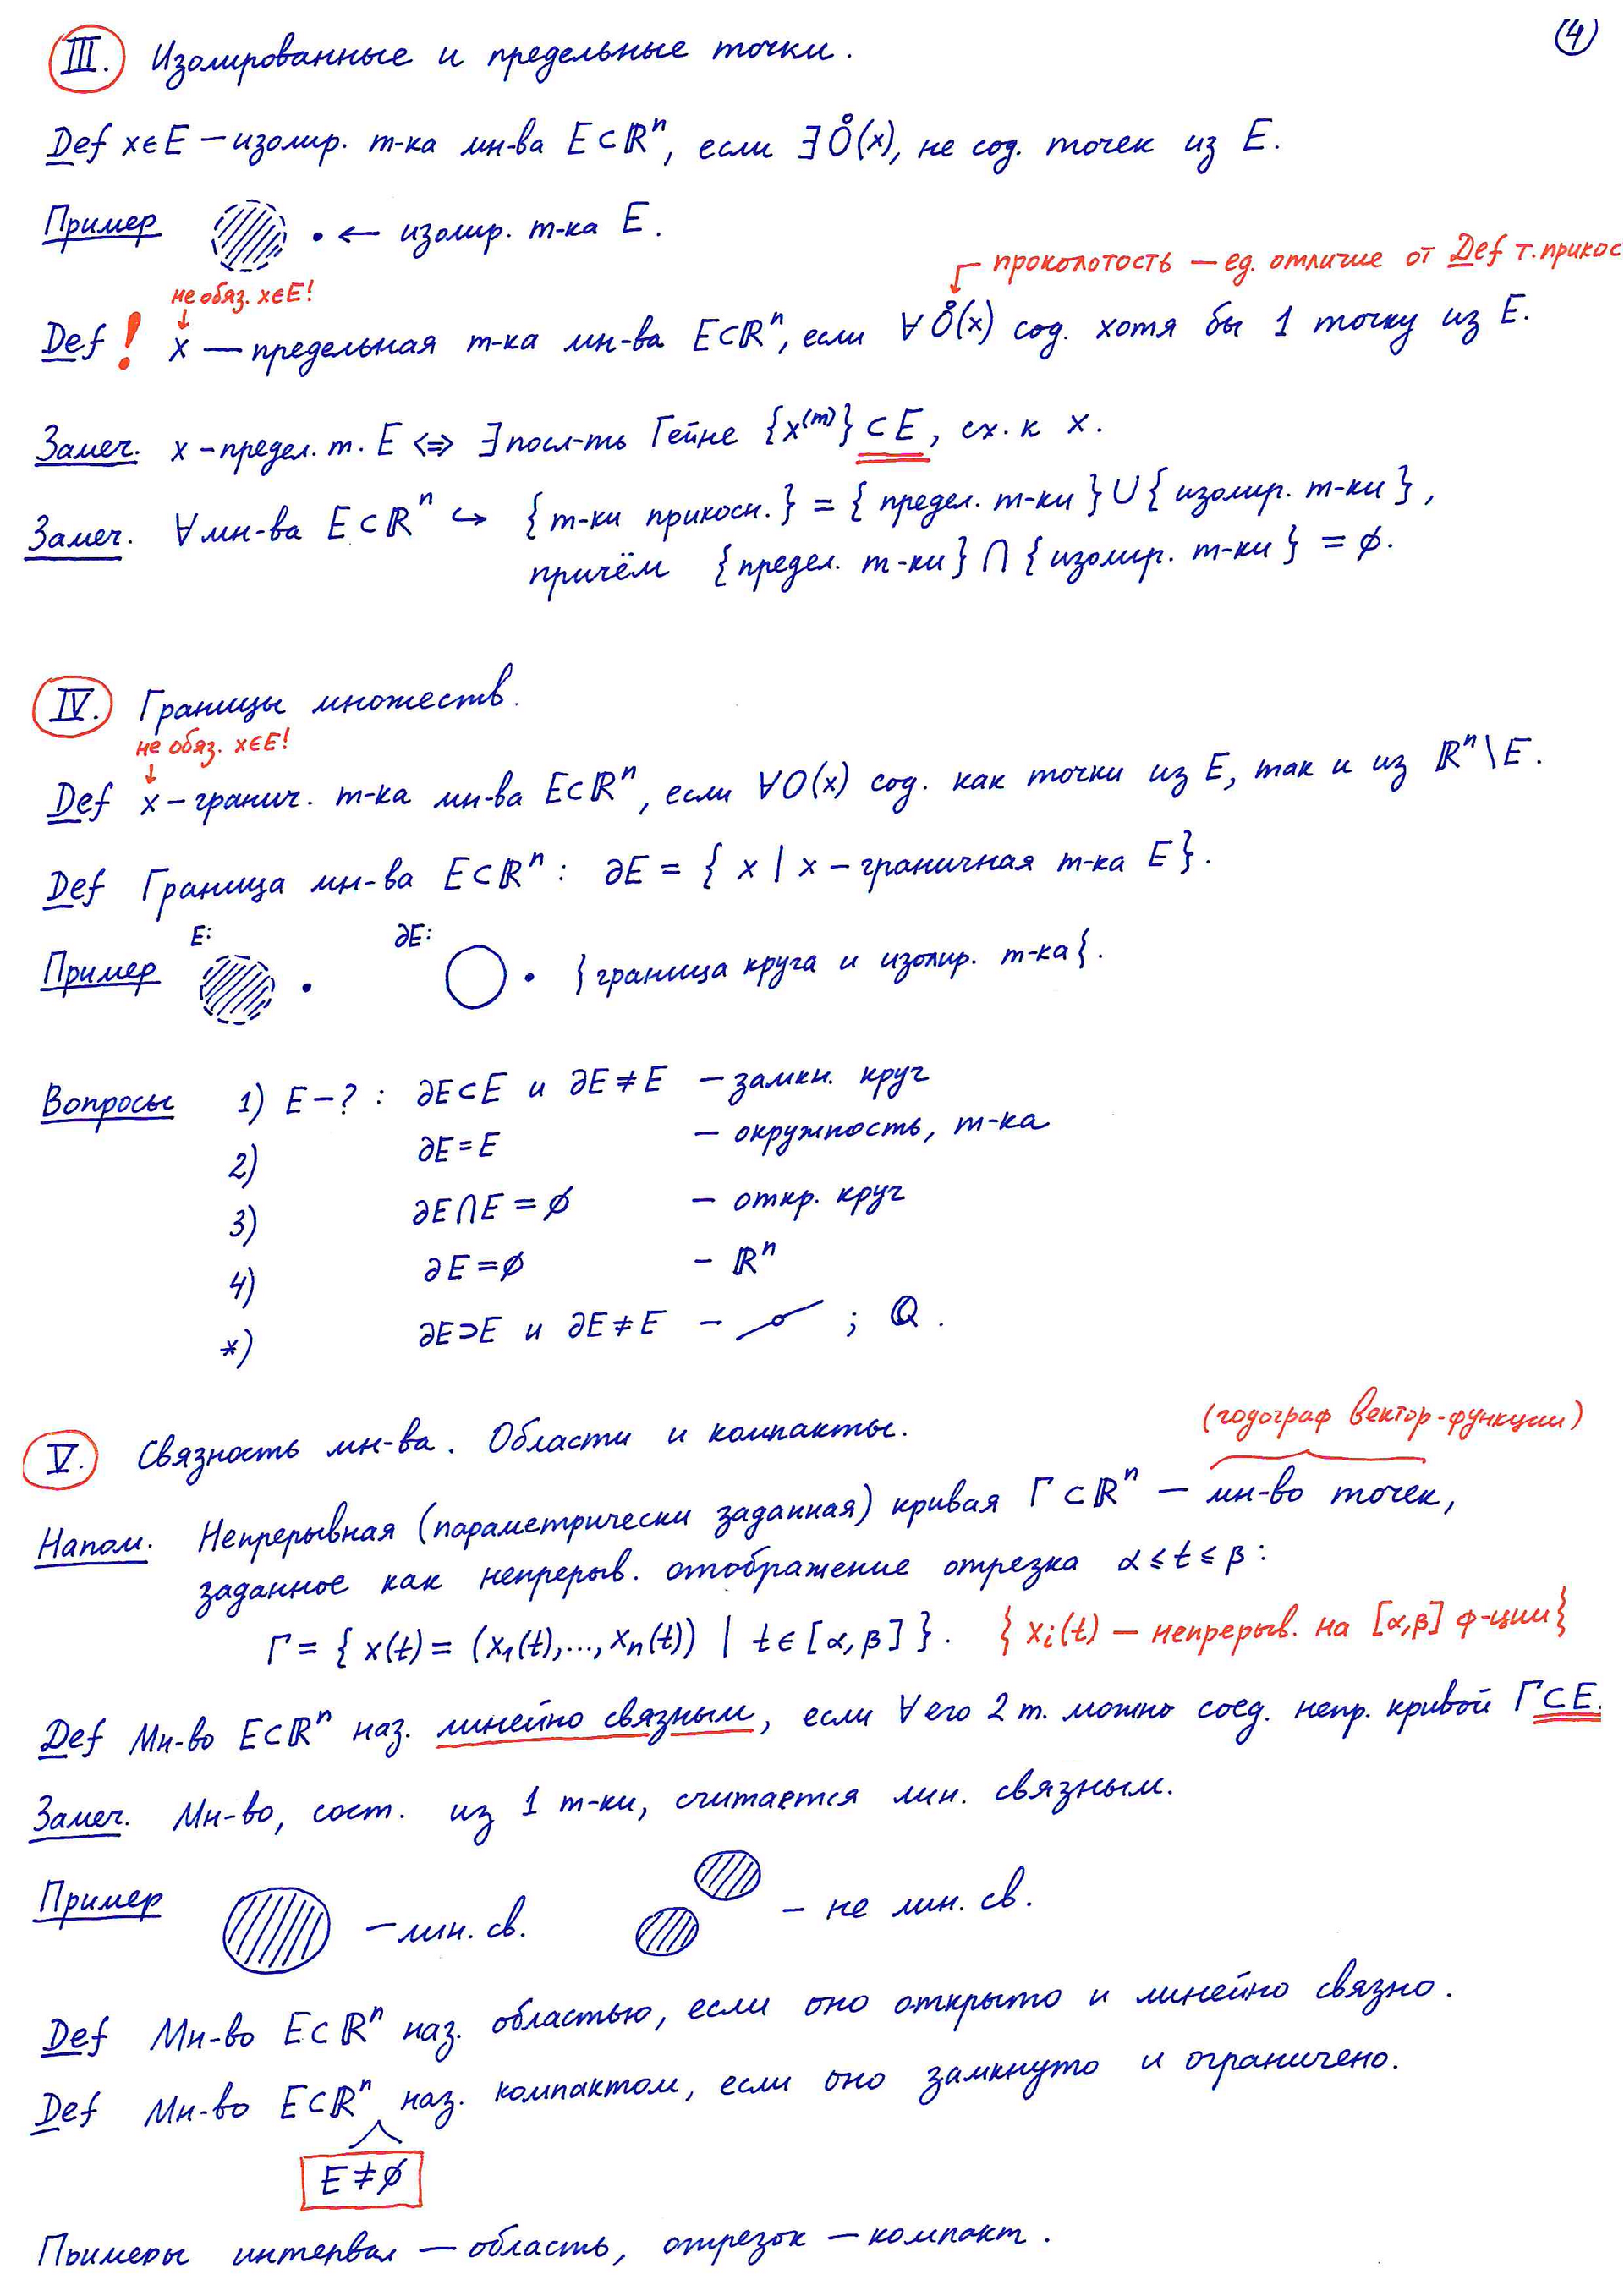 4
III. Изолированные и предельные точки.
Def x∈E – изолир. т-ка мн-ва E⊂ℝⁿ, если ∃ O̊(x), не сод. точек из E.
Пример • ← изолир. т-ка E.
проколотость – ед. отличие от Def т. прикос
не обяз. x∈E!
Def ! x – предельная т-ка мн-ва E⊂ℝⁿ, если ∀ O̊(x) сод. хотя бы 1 точку из E.
Замеч. x – предел. т. E ⇔ ∃ посл-ть Гейне {x⁽ᵐ⁾} ⊂ E, сх. к x.
Замеч. ∀ мн-ва E⊂ℝⁿ ↪ {т-ки прикосн.} = {предел. т-ки} ∪ {изолир. т-ки},
причём {предел. т-ки} ∩ {изолир. т-ки} = ∅.
IV. Границы множеств.
не обяз. x∈E!
Def x – гранич. т-ка мн-ва E⊂ℝⁿ, если ∀O(x) сод. как точки из E, так и из ℝⁿ\E.
Def Граница мн-ва E⊂ℝⁿ: ∂E = { x | x – граничная т-ка E}.
E: ∂E:
Пример } граница круга и изолир. т-ка {.
Вопросы 1) E – ? : ∂E⊂E и ∂E≠E – замкн. круг
2) ∂E=E – окружность, т-ка
3) ∂E∩E=∅ – откр. круг
4) ∂E=∅ – ℝⁿ
*) ∂E⊃E и ∂E≠E – ; ℚ.
(годограф вектор-функции)
V. Связность мн-ва. Области и компакты.
Напом. Непрерывная (параметрически заданная) кривая Γ⊂ℝⁿ – мн-во точек,
заданное как непрерыв. отображение отрезка α ≤ t ≤ β:
Γ = { x(t) = (x₁(t),..., xₙ(t)) | t∈[α,β] }. } xᵢ(t) – непрерыв. на [α,β] ф-ции }
Def Мн-во E⊂ℝⁿ наз. линейно связным, если ∀ его 2 т. можно соед. непр. кривой Γ⊂E.
Замеч. Мн-во, сост. из 1 т-ки, считается лин. связным.
Пример – лин. св. – не лин. св.
Def Мн-во E⊂ℝⁿ наз. областью, если оно открыто и линейно связно.
Def Мн-во E⊂ℝⁿ наз. компактом, если оно замкнуто и ограничено.
E≠∅
Примеры интервал – область, отрезок – компакт.